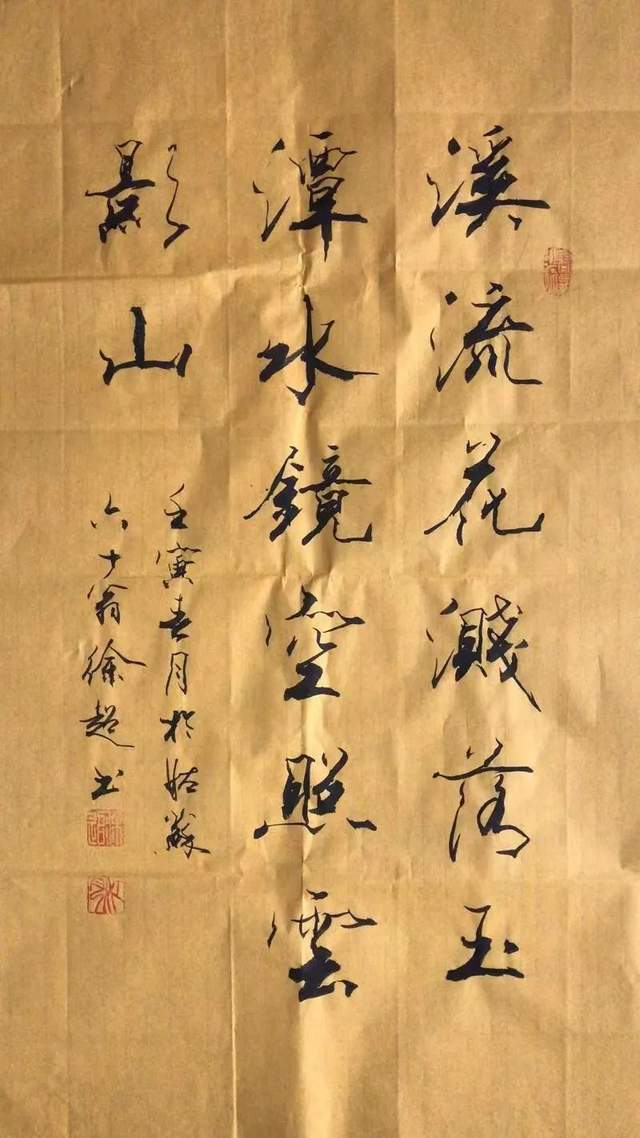 溪流花濺落玉
潭水鏡空照雲
影山
壬寅春月於姑蘇
六十翁徐超書